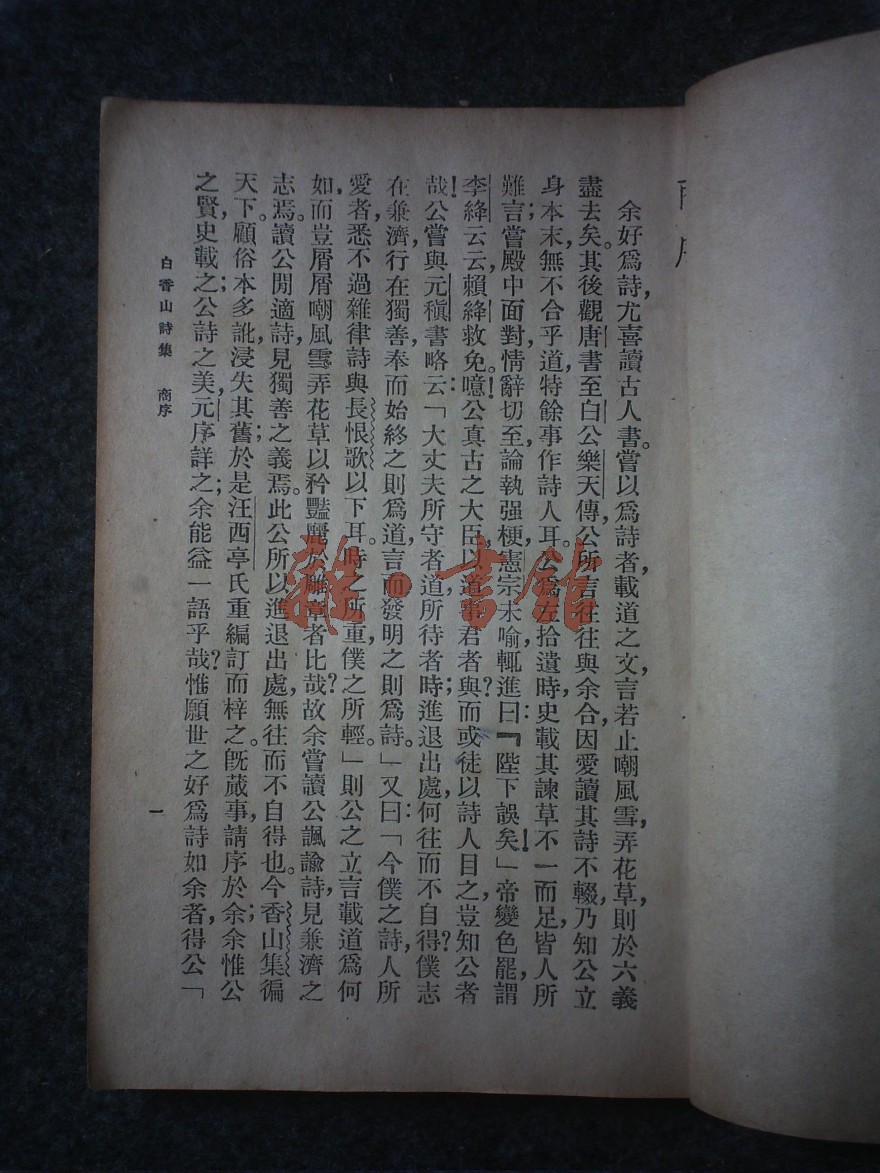 余好爲詩，尤喜讀古人書。嘗以爲詩者，載道之文，言若止嘲風雪，弄花草，則於六義
盡去矣。其後觀唐書至白公樂天傳，公所言往往與余合，因愛讀其詩不輟，乃知公立
身本末，無不合乎道，特餘事作詩人耳。公爲左拾遺時，史載其諫草不一而足，皆人所
難言；嘗殿中面對，情辭切至，論執强梗，憲宗未喻，輒進曰：『陛下誤矣！」帝變色罷，謂
李絳云云，賴絳救免。噫！公真古之大臣以道事君者與？而或徒以詩人目之，豈知公者
哉！公嘗與元稹書略云：「大丈夫所守者道，所待者時；進退出處，何往而不自得？僕志
在兼濟，行在獨善，奉而始終之則爲道，言而發明之則爲詩。」又曰：「今僕之詩，人所
愛者，悉不過雜律詩與長恨歌以下耳。時之所重，僕之所輕。」則公之立言載道爲何
如，而豈屑屑嘲風雪弄花草以矜豔麗於雕章者比哉？故余嘗讀公諷諭詩，見兼濟之
志焉。讀公閒適詩，見獨善之義焉。此公所以進退出處，無往而不自得也。今香山集徧
天下。顧俗本多訛，浸失其舊；於是汪西亭氏重編訂而梓之。旣蕆事，請序於余；余惟公
之賢，史載之；公詩之美，元序詳之；余能益一語乎哉？惟願世之好爲詩如余者，得公「
白香山詩集 商序
一
雜·書館